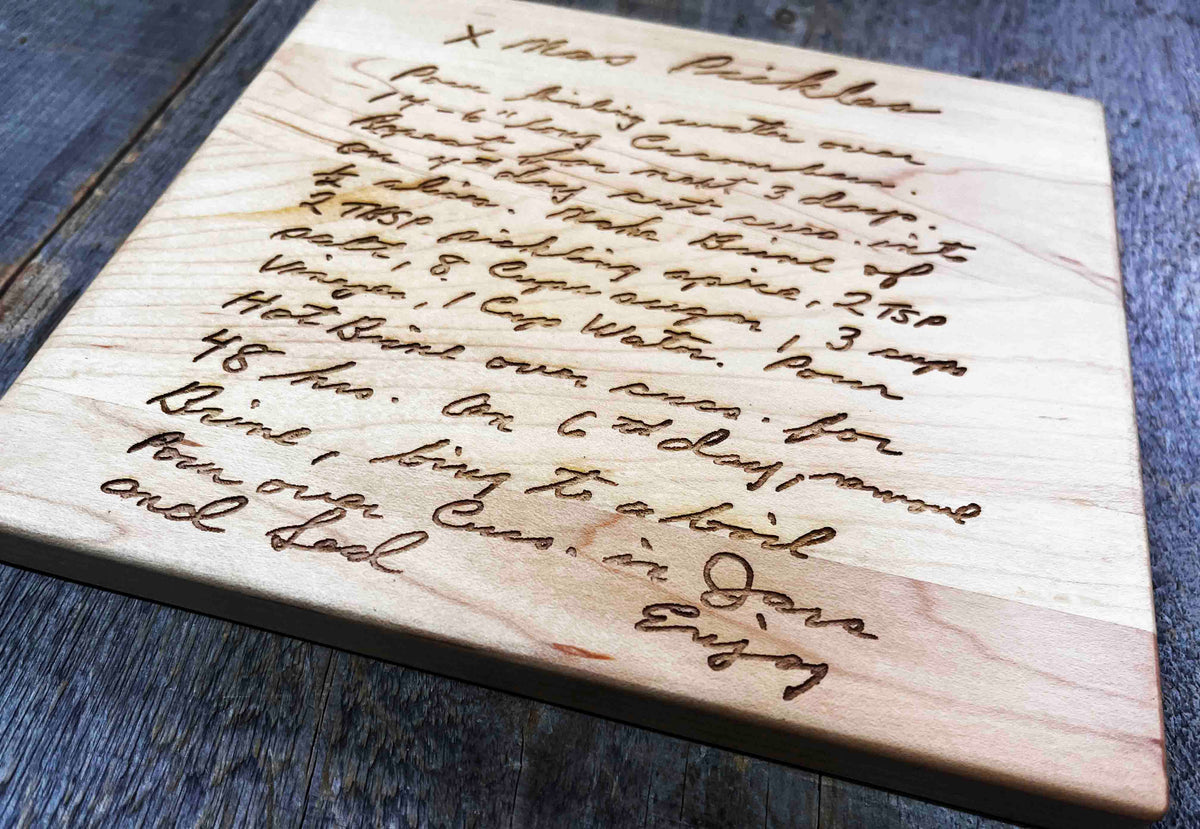 X Mas Pickles
Pour boiling water over
14-6" long Cucumbers.
Repeat for next 3 days.
on 4th day cut cucs. into
1/4 slices. Make Brine of
2 TBSP pickling spice, 2 TSP
salt, 8 Cups sugar, 3 cups
Vinegar, 1 Cup Water. Pour
Hot Brine over cucs. for
48 hrs. On 6TH day, remove
Brine, bring to a boil
Pour over Cucs. in Jars
and Seal
Enjoy